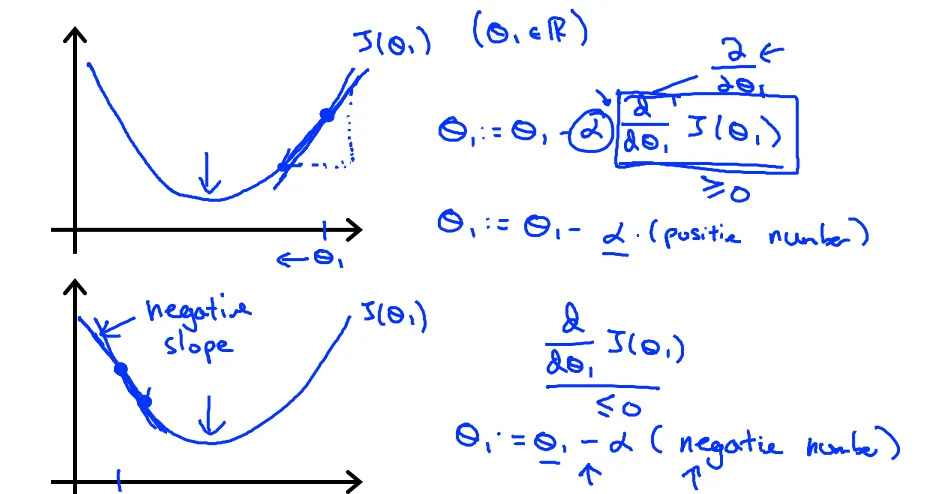 J(Θ₁) (Θ₁ ∈ ℝ)
∂/∂Θ₁ ←
Θ₁ := Θ₁ - α d/dΘ₁ J(Θ₁)
≥ 0
Θ₁ := Θ₁ - α · (positie number)
← Θ₁
negative slope
J(Θ₁)
d/dΘ₁ J(Θ₁)
≤ 0
Θ₁ := Θ₁ - α (negatie number)